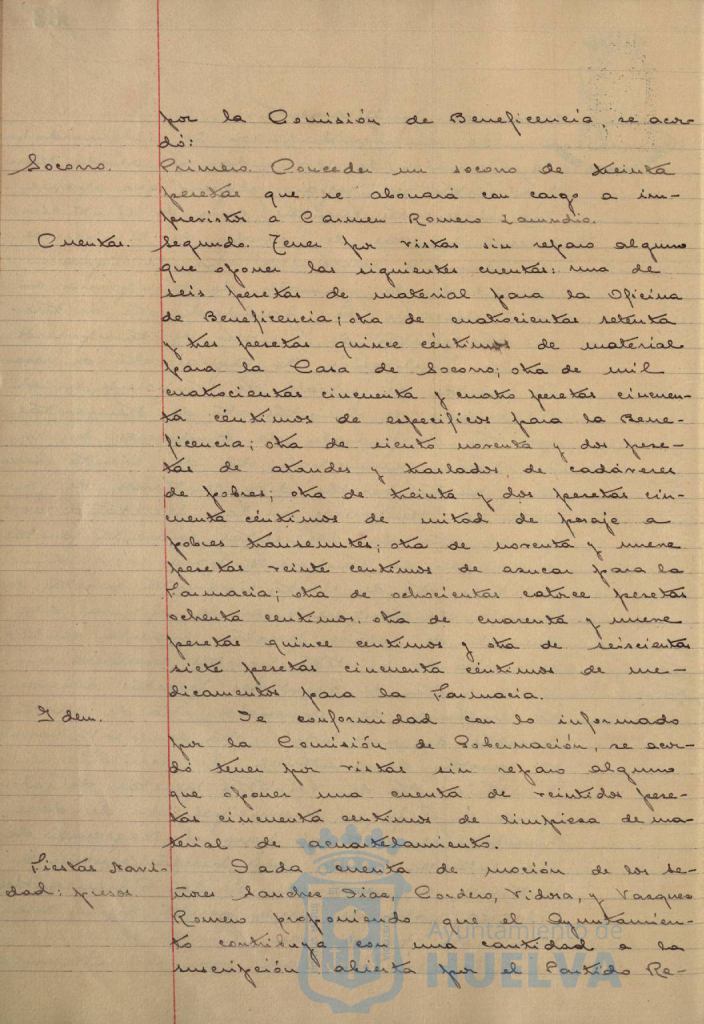 por la Comisión de Beneficencia, se acor-
dó:
Socorro. Primero. Conceder un socorro de treinta
pesetas que se abonará con cargo a im-
previstos a Carmen Romero
Cuentas. Segundo. Tener por vistas sin reparo alguno
que oponer las siguientes cuentas: una de
seis pesetas de material para la Oficina
de Beneficencia; otra de cuatrocientas setenta
y tres pesetas quince céntimos de material
para la Casa de Socorro; otra de mil
cuatrocientas cincuenta y cuatro pesetas cincuen-
ta céntimos de específicos para la Bene-
ficencia; otra de ciento noventa y dos pese-
tas de ataudes y traslados de cadáveres
de pobres; otra de treinta y dos pesetas cin-
cuenta céntimos de mitad de pasaje a
pobres transeuntes; otra de noventa y nueve
pesetas veinte centimos de azucar para la
Farmacia; otra de ochocientas catorce pesetas
ochenta centimos. otra de cuarenta y nueve
pesetas quince centimos y otra de seiscientas
siete pesetas cincuenta céntimos de me-
dicamentos para la Farmacia.
Idem. De conformidad con lo informado
por la Comisión de Gobernación, se acor-
dó tener por vistas sin reparo alguno
que oponer una cuenta de veintidos pese-
tas cincuenta centimos de limpieza de ma-
terial de acuartelamiento.
Fiestas Navi- Dada cuenta de moción de los Se-
dad: presos. ñores Sanchez Diaz, Cordero, Vidosa, y Vazquez
Romero proponiendo que el Ayuntamien-
to contribuya con una cantidad a la
suscripción abierta por el Partido Re-
Ayuntamiento de
HUELVA